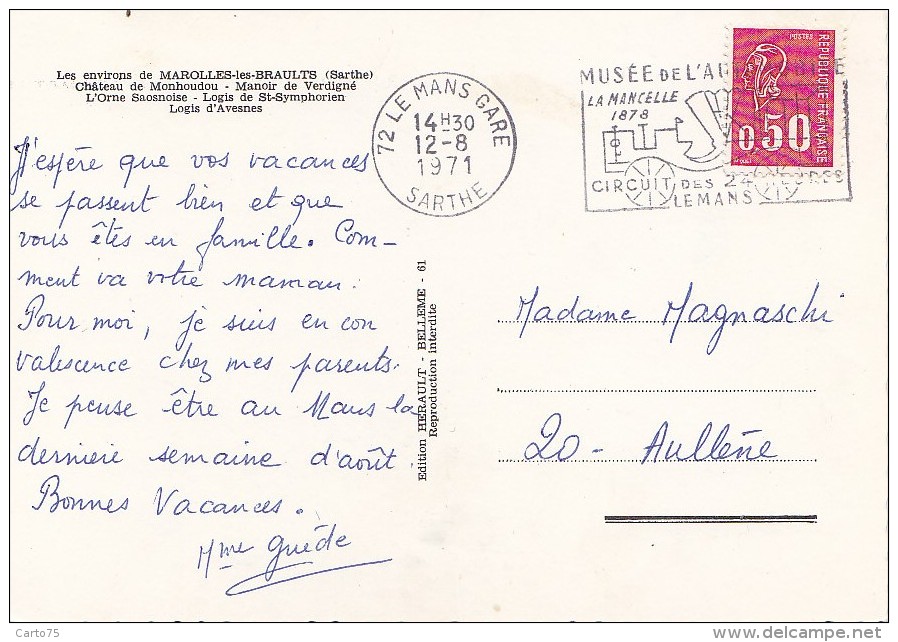 Les environs de MAROLLES-les-BRAULTS (Sarthe)
Château de Monhoudou - Manoir de Verdigné
L'Orne Saosnoise - Logis de St-Symphorien
Logis d'Avesnes
J'espère que vos vacances
se passent bien et que
vous êtes en famille. Com-
ment va votre maman.
Pour moi, je suis en con
valescence chez mes parents.
Je pense être au Mans la
dernière semaine d'août.
Bonnes Vacances.
Mme Guède
72 LE MANS GARE
14H30
12-8
1971
SARTHE
MUSÉE DE L'AU
LA MANCELLE
1878
CIRCUIT DES 24
LE MANS
POSTES
REPUBLIQUE FRANÇAISE
0,50
Edition HERAULT - BELLEME - 61
Reproduction interdite
Madame Magnaschi
20 - Aullène
Carto75
delcampe.net